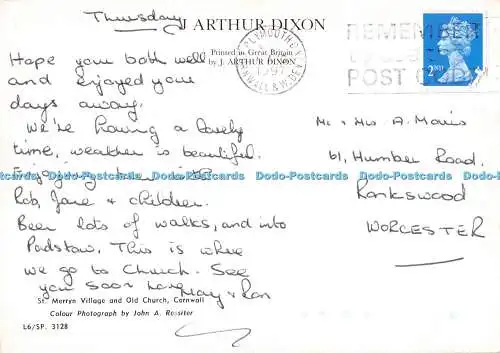 Thursday
J ARTHUR DIXON
Printed in Great Britain
by J. ARTHUR DIXON
PLYMOUTH &
1997
CORNWALL & W. DEV
REMEMBER
POST CODE
2ND
Hope you both well
and enjoyed your
days away.
We're having a lovely
time, weather is beautiful.
Enjoying time with
Rob, Jane & children.
Been lots of walks, and into
Padstow. This is where
we go to Church. See
you soon Love
May & Ron
Mr & Mrs A. Morris
61, Humber Road,
Ronkswood
WORCESTER
Dodo-Postcards Dodo-Postcards Dodo-Postcards Dodo-Postcards Dodo-Postcards Dodo-Postcards
St. Merryn Village and Old Church, Cornwall
Colour Photograph by John A. Rossiter
L6/SP. 3128